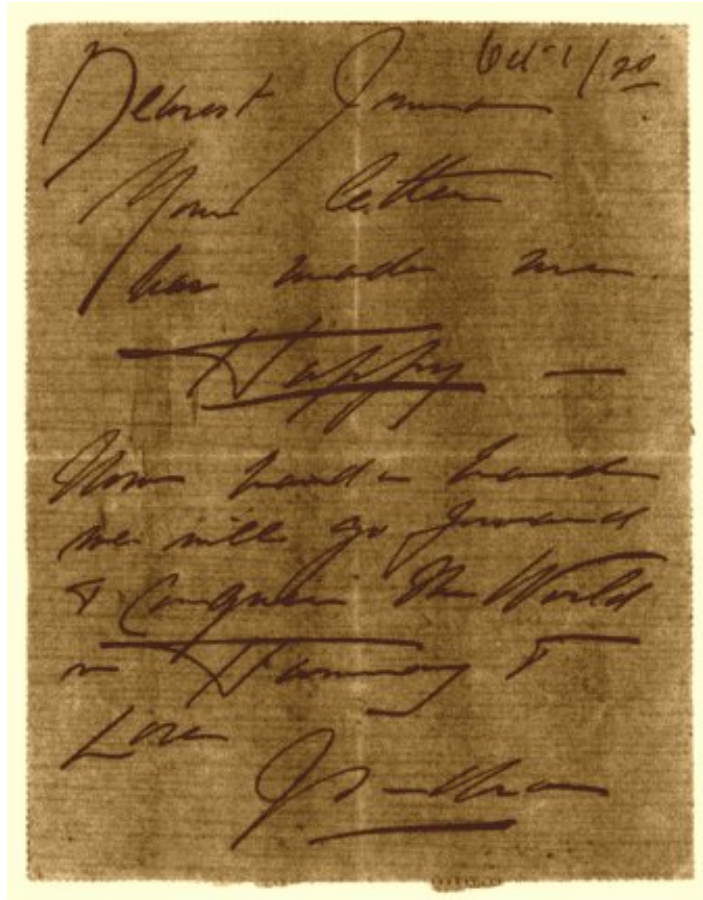 Oct 1/20
Dearest
Your letter
has made me
Happy —
Now hand in hand
we will go forward
& Conquer The World
in Harmony &
Love